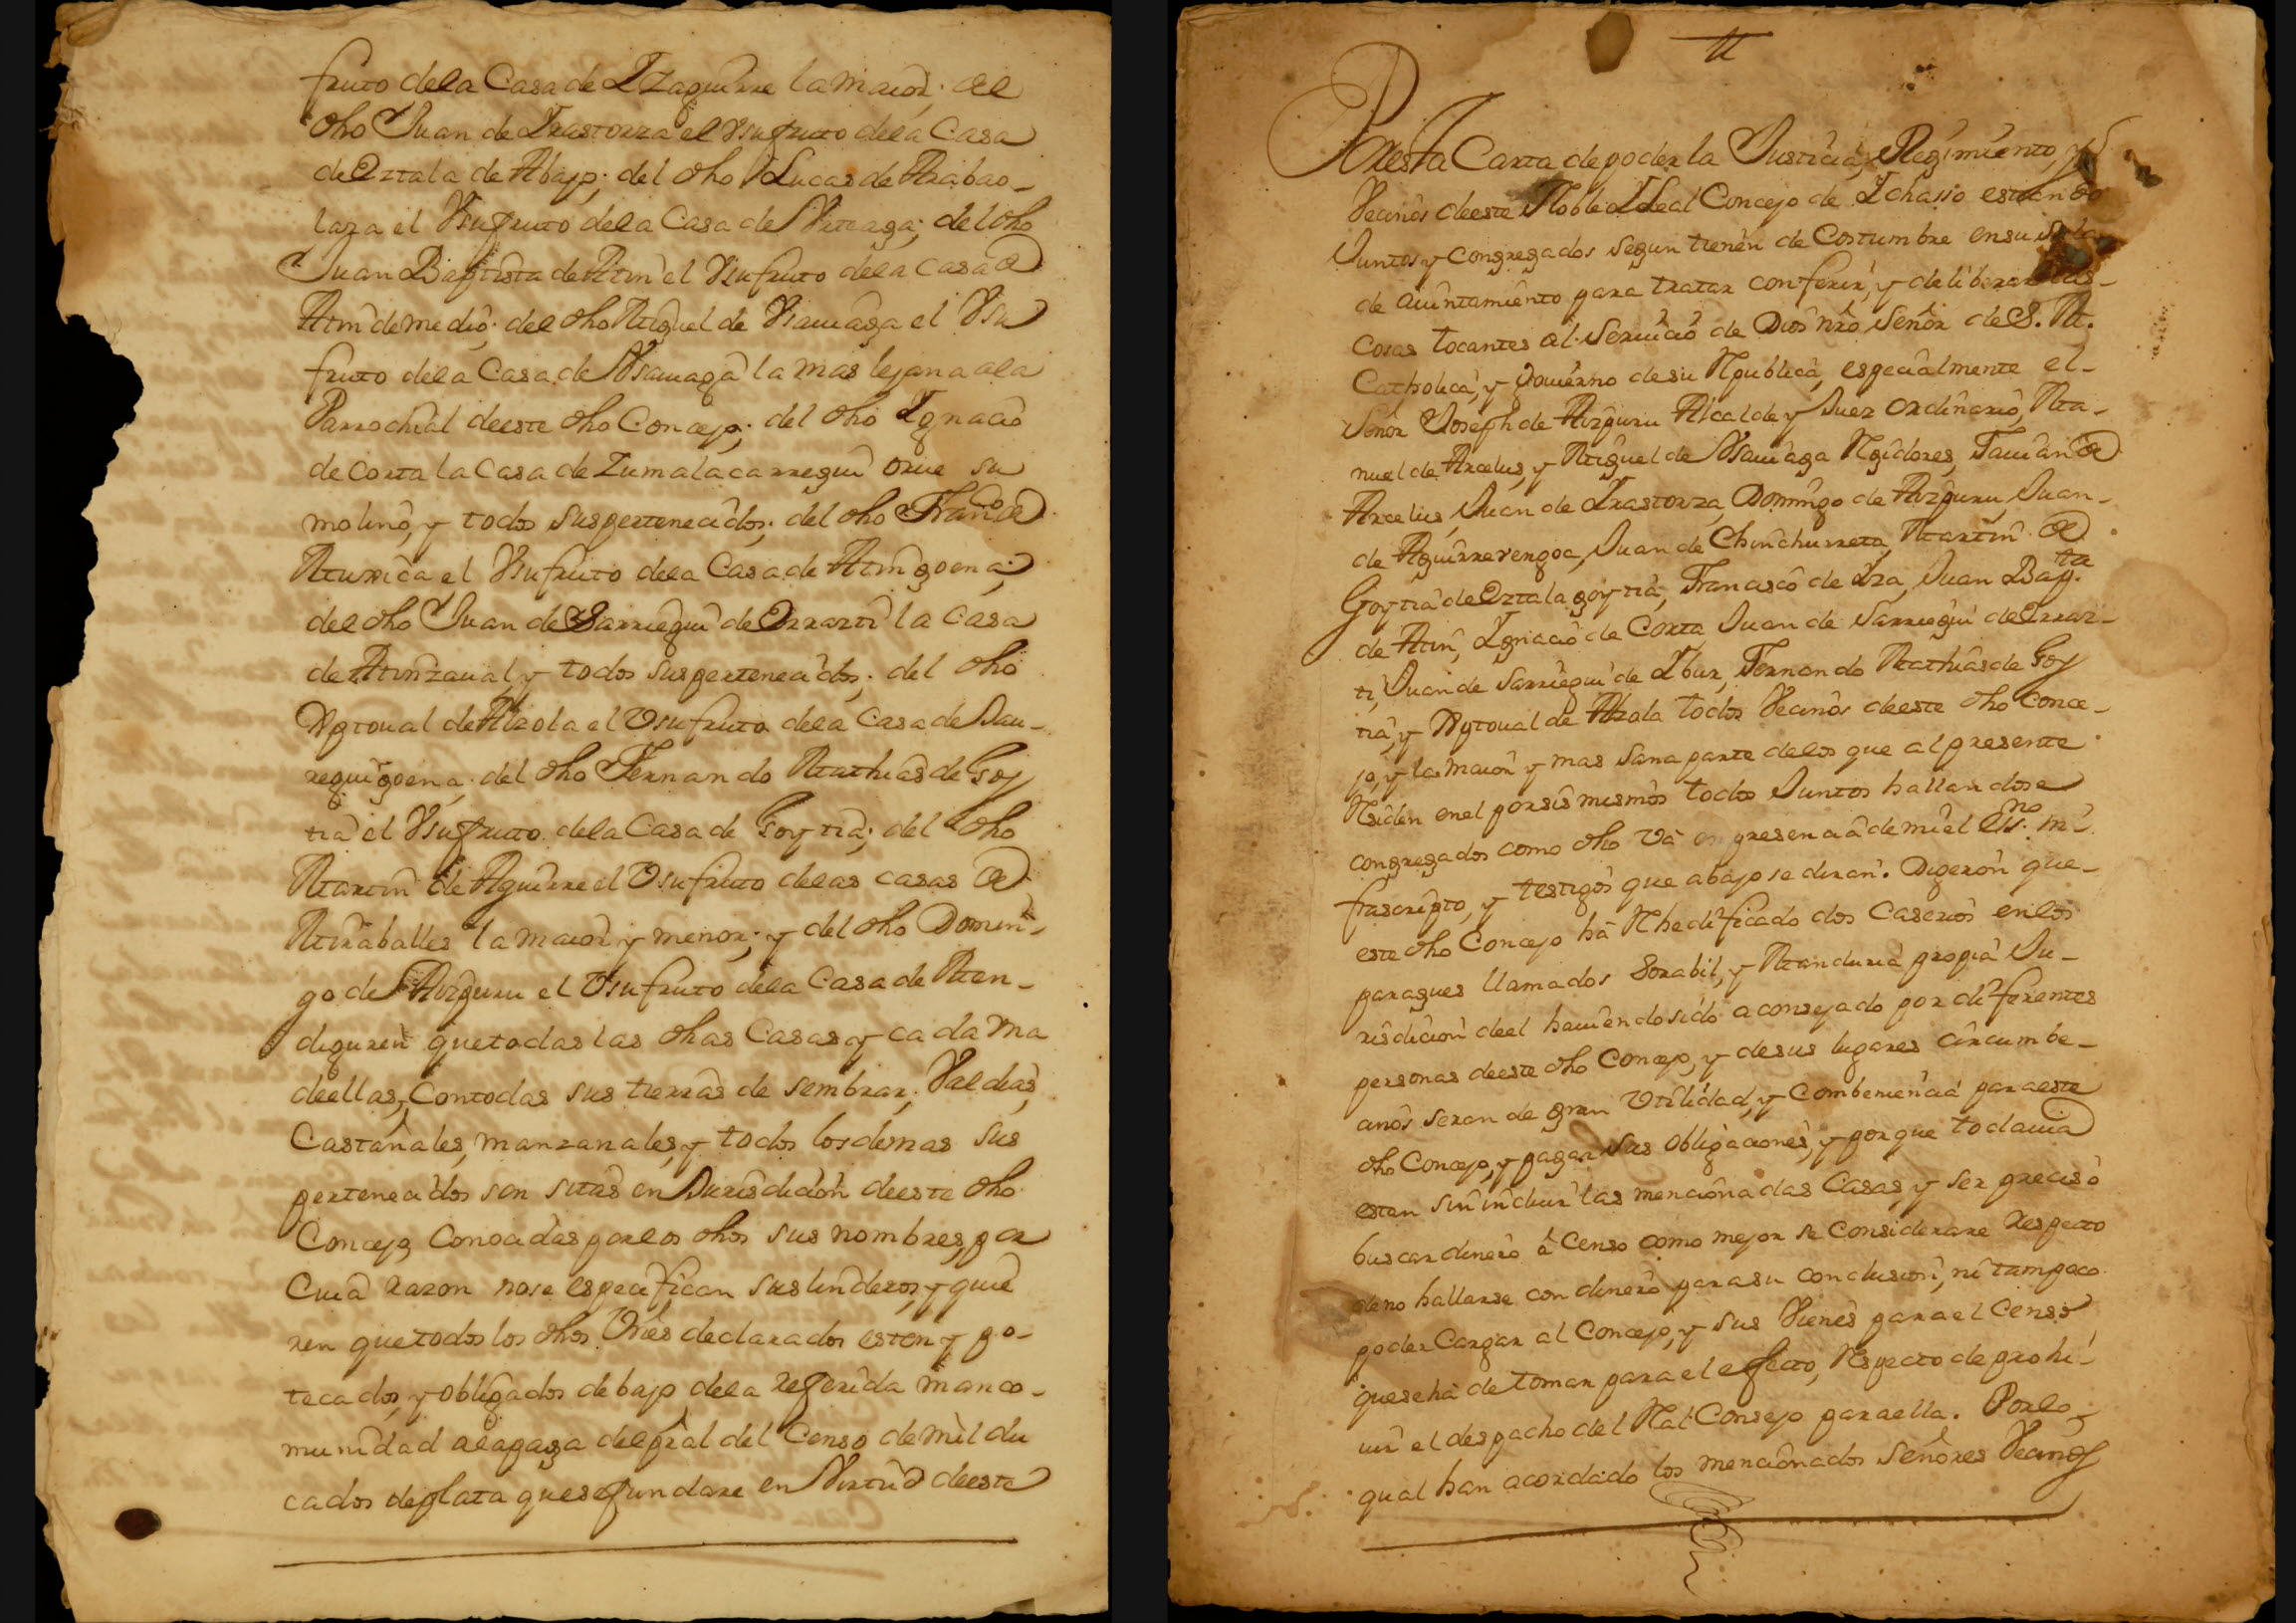 fruto dela Casa de Yzaguirre la maior; del
dho Juan de Yrastorza el Vsufruto dela Casa
de Oztala de Abajo; del dho Lucas de Arabao-
laza el Vsufruto dela Casa de Viteaga; del dho
Juan Baptista de Atin el Vsufruto dela casa de
Atin de medio; del dho Miguel de Vsauiaga el Vsu
fruto dela Casa de Vsauiaga la mas lejana ala
Parrochial deeste dho Concejo; del dho Ygnacio
de Corta la Casa de Zumalacarregui su
molino, y todos sus pertenecidos; del dho Franco de
Muxica el Vsufruto dela Casa de Atin goena;
del dho Juan de Sarriegui de Errazti la Casa
de Atinzaual, y todos sus pertenecidos; del dho
Xptoual de Alzola el Vsufruto dela Casa de Jau-
reguigoena; del dho Fernando Mathias de Goy
tia el Vsufruto dela Casa de Goytia; del dho
Martin de Aguirre el Vsufruto delas casas de
Miraballes la maior y menor; y del dho Domin-
go de Aizpuru el Vsufruto dela Casa de Men-
diguren que todas las dhas Casas y cada vna
deellas, Contodas sus tierras de sembrar, Valdias,
Castañales, manzanales, y todos los demas sus
pertenecidos son sitas en Jurisdicion deeste dho
Concejo, Conocidas por los dhos sus nombres, por
Cuia razon nose especifican sus linderos, y quie
ren que todos los dhos Vnes declarados esten ypo-
tecados, y obligados debajo dela referida manco-
munidad ala paga del pral del Censo de mil du
cados de plata que se fundare en Virtud deeste
Por esta Carta de poder la Justicia, Regimiento, y
Vecinos deeste Noble Y Leal Concejo de Ychasso estando
Juntos y congregados segun tienen de Costumbre en su sala
de aiuntamiento para tratar conferir, y deliberar las
cosas tocantes al seruicio de Dios nro Señor de S. M.
Catholica, y Gouierno desu Republica, especialmente el
Señor Joseph de Aizpuru Alcalde y Juez ordinario, Ma-
nuel de Arcelus, y Miguel de Vsauiaga Regidores, de
Arcelus, Juan de Yrastorza, Domingo de Aizpuru, Juan
de Aguirrevengoa, Juan de Chinchurreta, Martin de
Goytia de Oztala goytia, Francisco de Yza, Juan Bap.ta
de Atin, Ygnacio de Corta, Juan de Sarriegui de Erraz-
ti, Juan de Sarriegui de Ybur, Fernando Mathias de Goy
tia, y Xptoual de Alzola todos Vecinos deeste dho Conce-
jo, y la maior y mas sana parte delos que al presente
Residen enel por sis mismos todos Juntos hallandose
congregados como dho Va en presencia de mi el Ess.no in
frascripto, y testigos que abajo se diran. Digeron que
este dho Concejo há Rhedificado dos Caserios enlos
parages llamados Sorabil, y Manduria propia Ju-
risdicion deel hauiendo sido aconsejado por diferentes
personas deeste dho Concejo, y desus lugares circumbe-
cinos seran de gran Vtilidad, y Combeniencia para este
dho Concejo, y pagar sus obligaciones, y porque todauia
estan sin incluir las mencionadas Casas, y ser preciso
buscar dinero á Censo como mejor se Considerare Respecto
de no hallarse con dinero para su conclusion, ni tampoco
poder Cargar al Concejo, y sus Vienes para el Censo
que se ha de tomar para el efecto, Respecto de prohi-
uir el despacho del Real Consejo para ella. Por lo
qual han acordado los mencionados Señores Vecinos